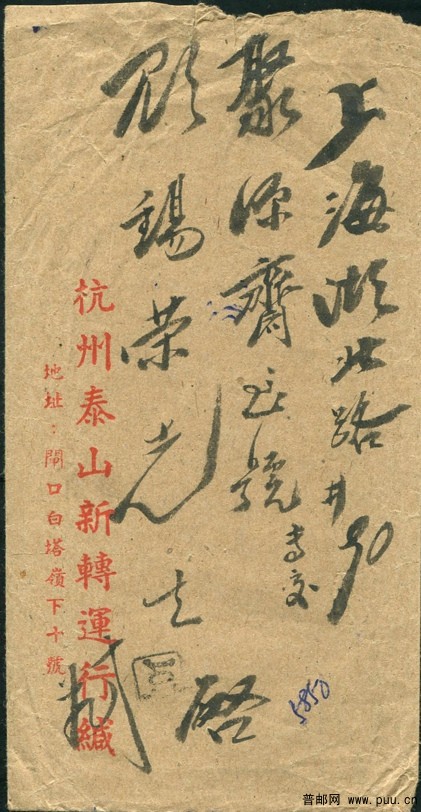 上海湖北路廿90
聚源齋玉號
考交
顧錫荣先生
啓
杭州泰山新轉運行緘
地址：閘口白塔嶺下十號
5850
普邮网 www.puu.cn